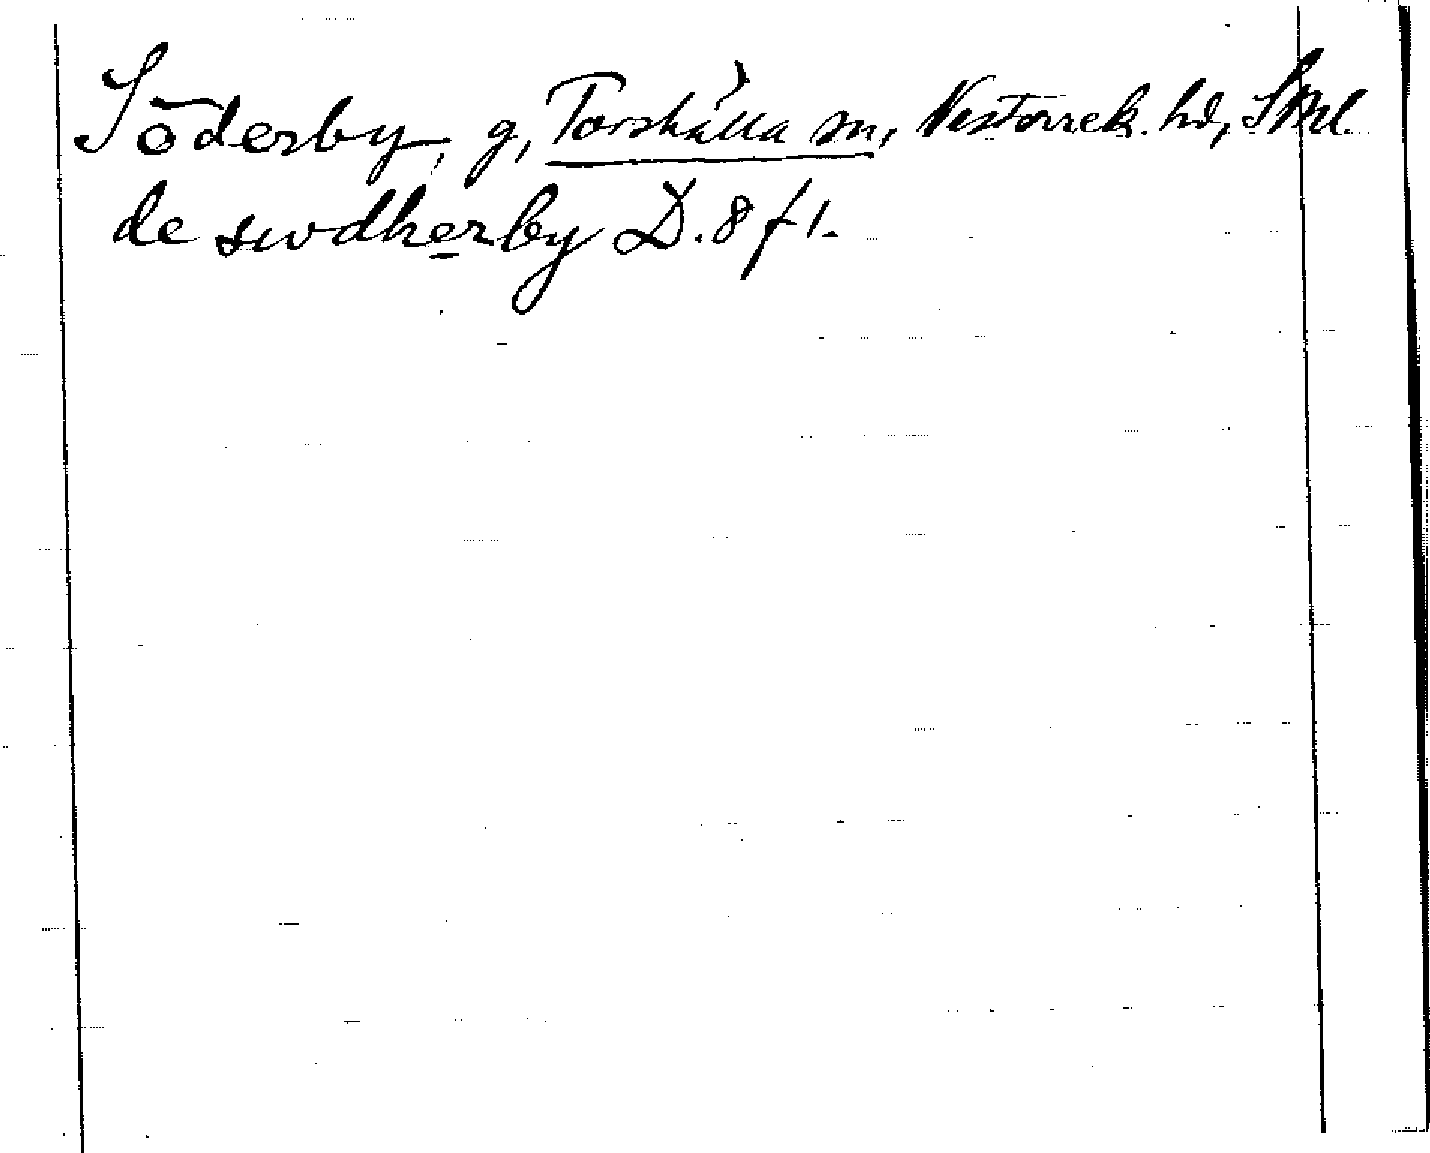 Söderby, g, Torshälla sn, Västerrek. hd, Srml.
de swdherby D. 8 f 1.